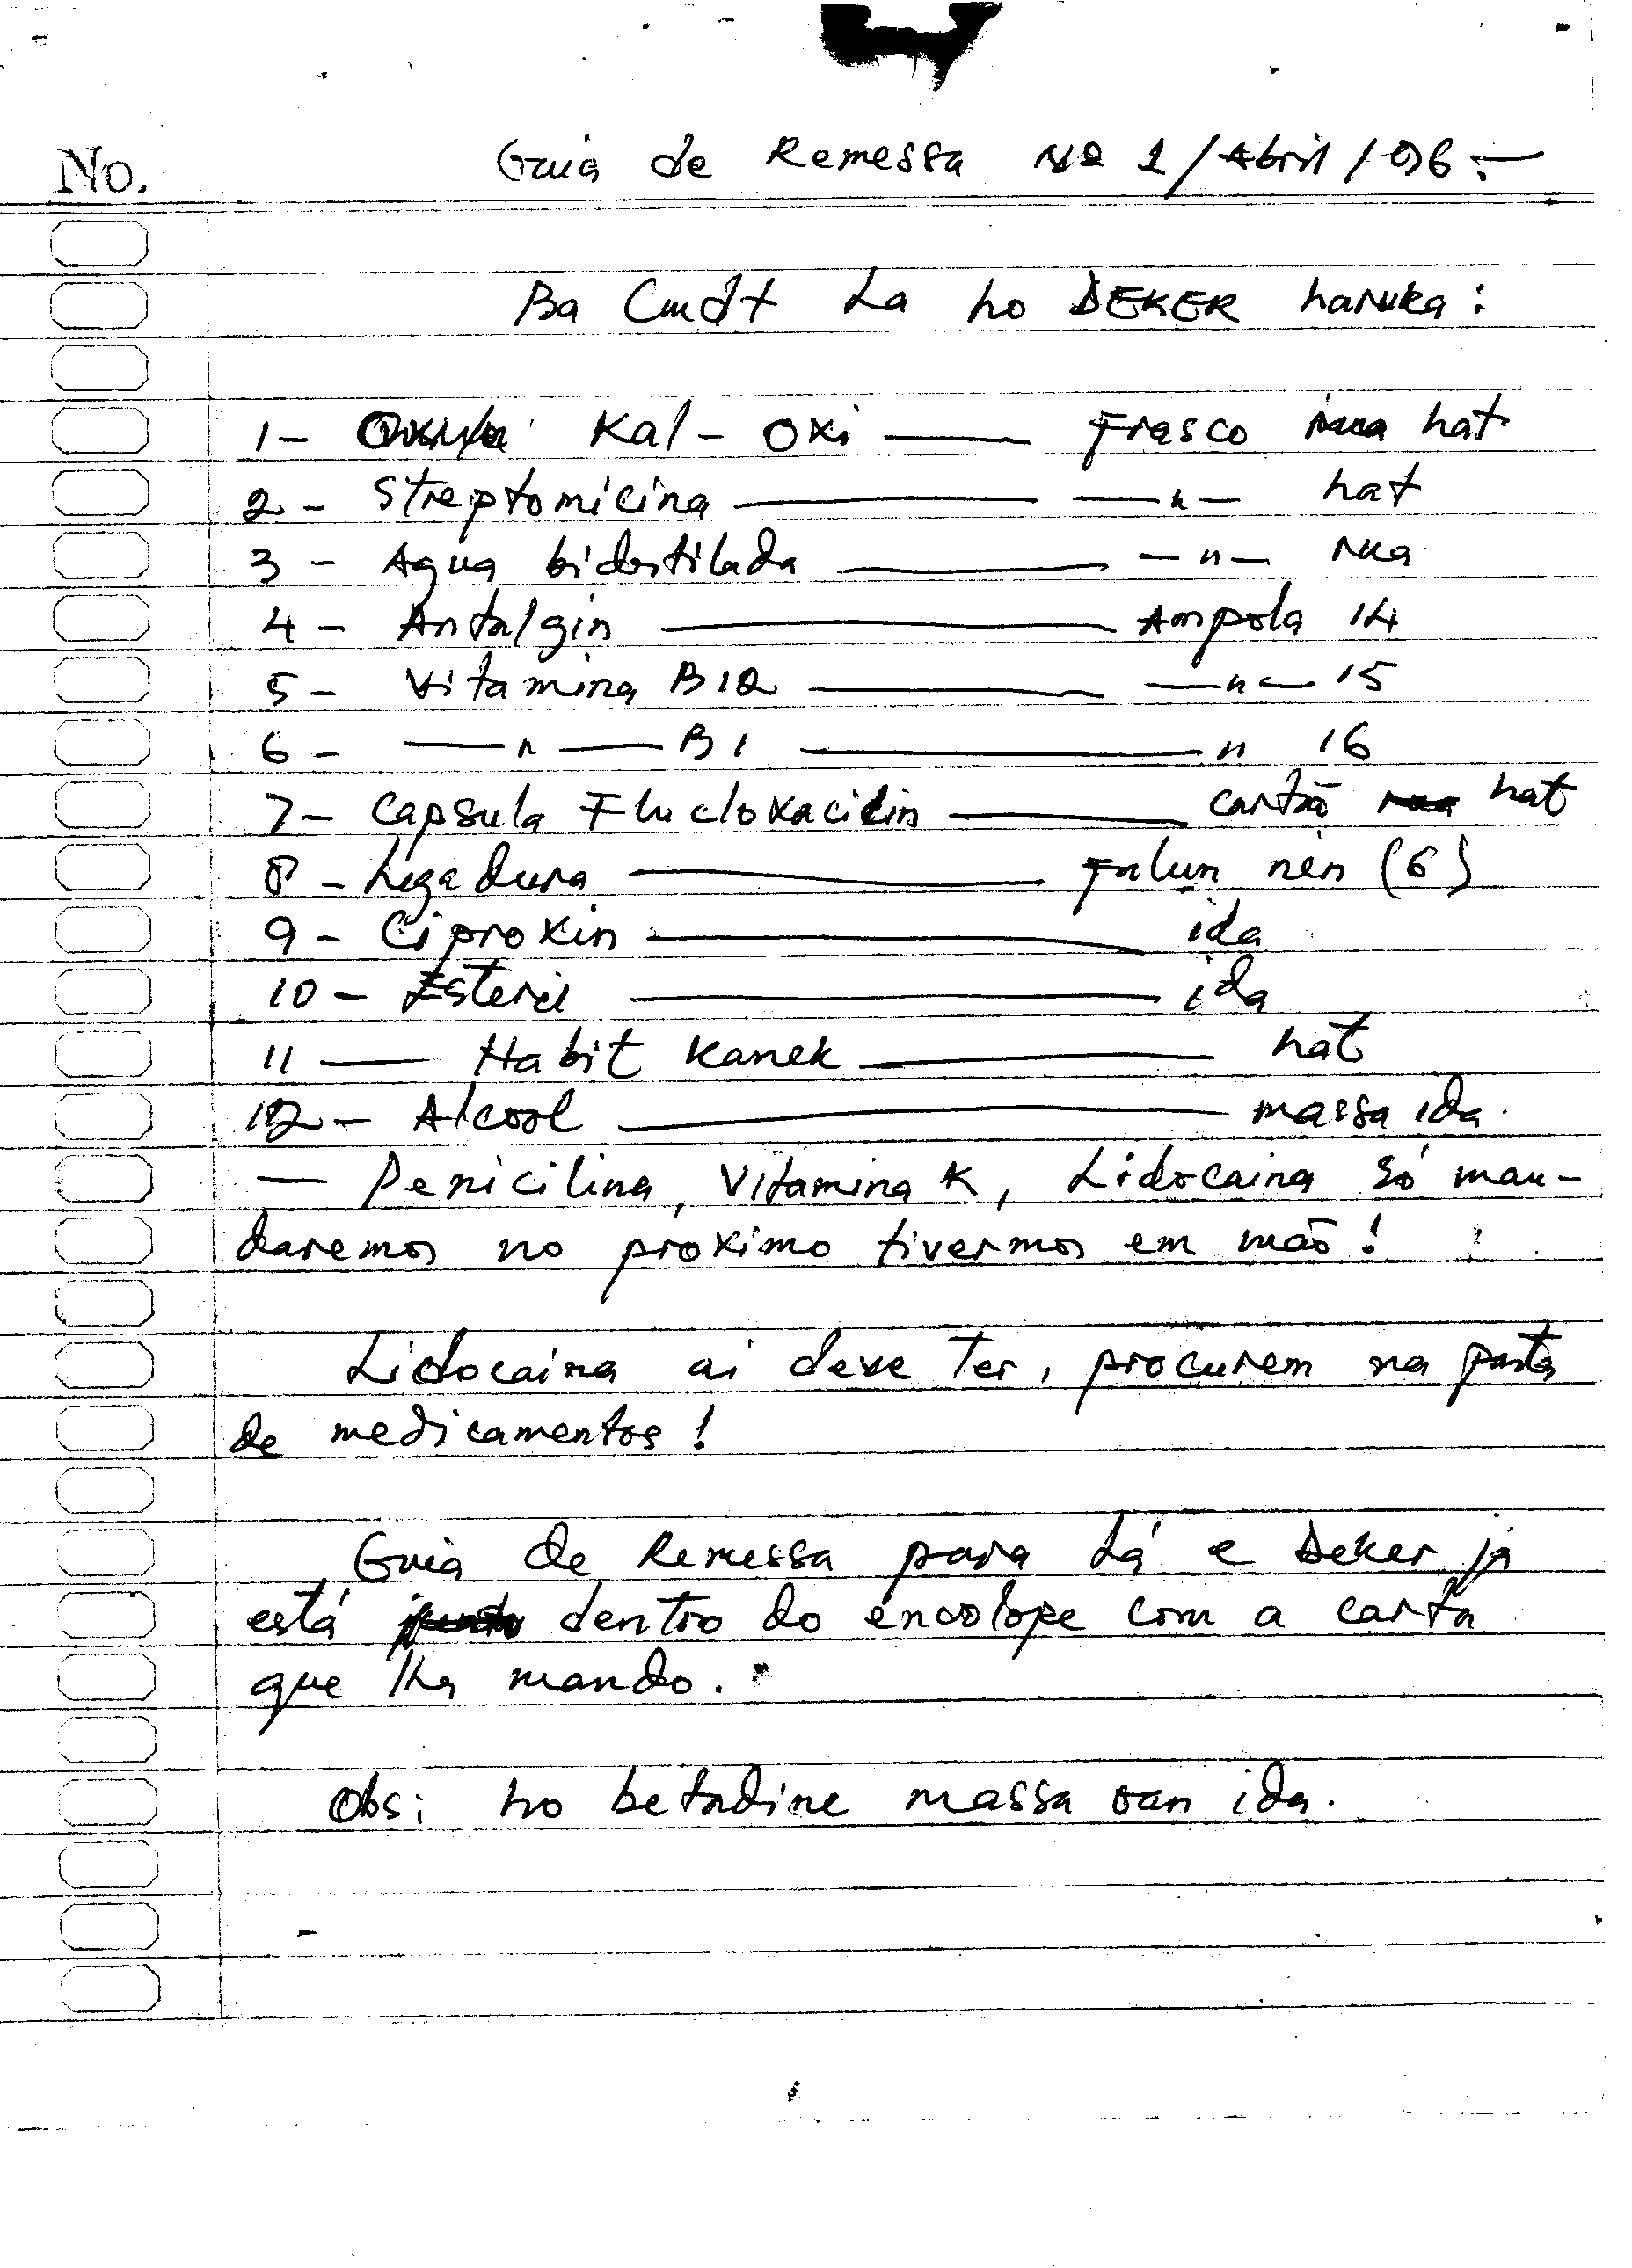 No.
Guia de Remessa Nº 1/Abril/96.—
Ba Cmdt La ho DEKER haruka:
1- Kal-oxi —— Frasco hat
2- Streptomicina —— —"— hat
3- Agua bidestilada —— —"— rua
4- Antalgin —— Ampola 14
5- Vitamina B12 —— —"— 15
6- —"— B1 —— " 16
7- Capsula Flucloxacilin —— cartão hat
8- Ligadura —— Falun nén (6)
9- Ciproxin —— ida
10- Esteril —— ida
11 — Habit Kanek —— hat
12- Alcool —— massa ida.
— Penicilina, Vitamina K, Lidocaina só man-
daremos no proximo tivermos em mão!
Lidocaina ai deve ter, procurem na pasta
de medicamentos!
Guia de Remessa para Lá e Deker já
está dentro do envolope com a carta
que lhe mando.
Obs: ho betadine massa oan ida.